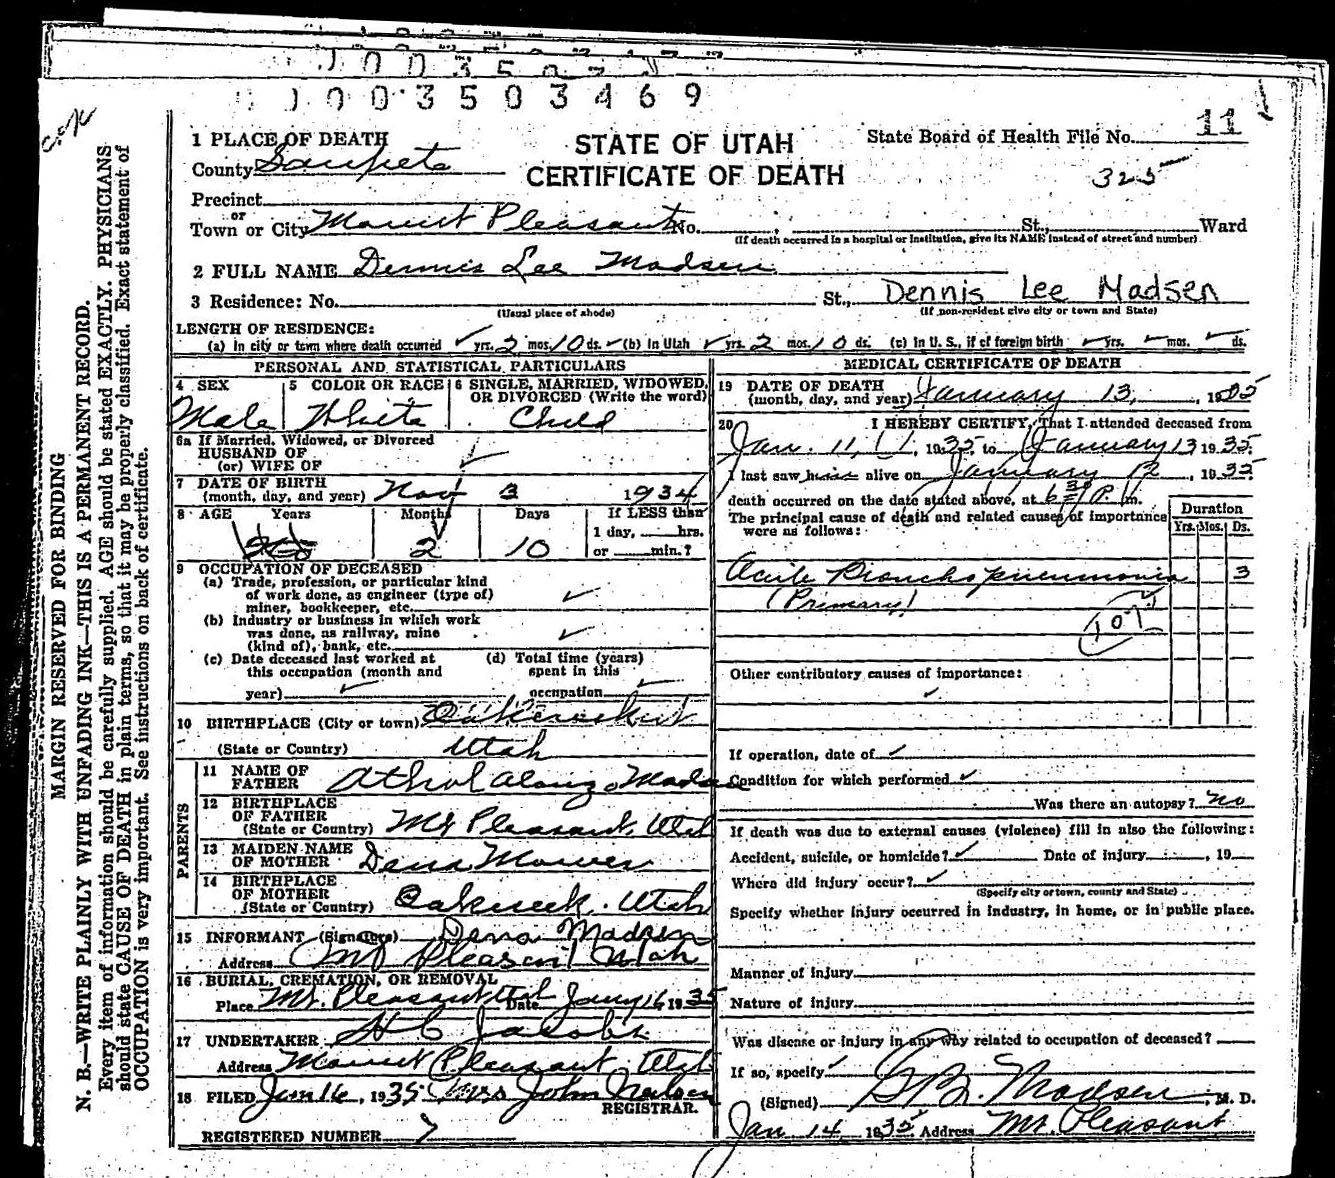 0003503469
11
State Board of Health File No.
325
STATE OF UTAH
CERTIFICATE OF DEATH
1 PLACE OF DEATH
County Sanpete
Precinct
or
Town or City Mount Pleasant No. St., Ward
(If death occurred in a hospital or institution, give its NAME instead of street and number)
2 FULL NAME Dennis Lee Madsen
3 Residence: No. St., Dennis Lee Madsen
(Usual place of abode) (If non-resident give city or town and State)
LENGTH OF RESIDENCE:
(a) In city or town where death occurred yrs. 2 mos. 10 ds. (b) In Utah yrs. 2 mos. 10 ds. (c) In U. S., if of foreign birth yrs. mos. ds.
PERSONAL AND STATISTICAL PARTICULARS
4 SEX 5 COLOR OR RACE 6 SINGLE, MARRIED, WIDOWED,
OR DIVORCED (Write the word)
Male White Child
6a If Married, Widowed, or Divorced
HUSBAND OF
(or) WIFE OF
7 DATE OF BIRTH
(month, day, and year) Nov 3 1934
8 AGE Years Months Days If LESS than
1 day, hrs.
2 10 or min.?
9 OCCUPATION OF DECEASED
(a) Trade, profession, or particular kind
of work done, as engineer (type of)
miner, bookkeeper, etc.
(b) Industry or business in which work
was done, as railway, mine
(kind of), bank, etc.
(c) Date deceased last worked at (d) Total time (years)
this occupation (month and spent in this
year) occupation
10 BIRTHPLACE (City or town)
(State or Country) Utah
PARENTS
11 NAME OF
FATHER Athol Alonzo Madsen
12 BIRTHPLACE
OF FATHER
(State or Country) Mt Pleasant, Utah
13 MAIDEN NAME
OF MOTHER Dena Mower
14 BIRTHPLACE
OF MOTHER
(State or Country) Oakcreek. Utah
15 INFORMANT (Signature) Dena Madsen
Address Mt Pleasant Utah
16 BURIAL, CREMATION, OR REMOVAL
Place Mt. Pleasant Utah Date Jany 16 1935
17 UNDERTAKER H C Jacobs
Address Mount Pleasant Utah
18 FILED Jan 16, 1935 Mrs John
REGISTRAR.
REGISTERED NUMBER 7
MEDICAL CERTIFICATE OF DEATH
19 DATE OF DEATH
(month, day, and year) January 13, 1935
20 I HEREBY CERTIFY, That I attended deceased from
Jan. 11, 1935 to January 13 1935.
I last saw alive on January 12, 1935
death occurred on the date stated above, at 6 30 P. m.
The principal cause of death and related causes of importance
were as follows:
Duration
Yrs. Mos. Ds.
Acute Bronchopneumonia 3
(Primary)
107
Other contributory causes of importance:
If operation, date of
Condition for which performed
Was there an autopsy? no
If death was due to external causes (violence) fill in also the following:
Accident, suicide, or homicide? Date of injury , 19
Where did injury occur?
(Specify city or town, county and State)
Specify whether injury occurred in industry, in home, or in public place.
Manner of injury
Nature of injury
Was disease or injury in any way related to occupation of deceased?
If so, specify
(Signed) Madsen, M. D.
Jan 14 1935 Address Mt. Pleasant
MARGIN RESERVED FOR BINDING
N. B.—WRITE PLAINLY WITH UNFADING INK—THIS IS A PERMANENT RECORD.
Every item of information should be carefully supplied. AGE should be stated EXACTLY. PHYSICIANS
should state CAUSE OF DEATH in plain terms, so that it may be properly classified. Exact statement of
OCCUPATION is very important. See instructions on back of certificate.